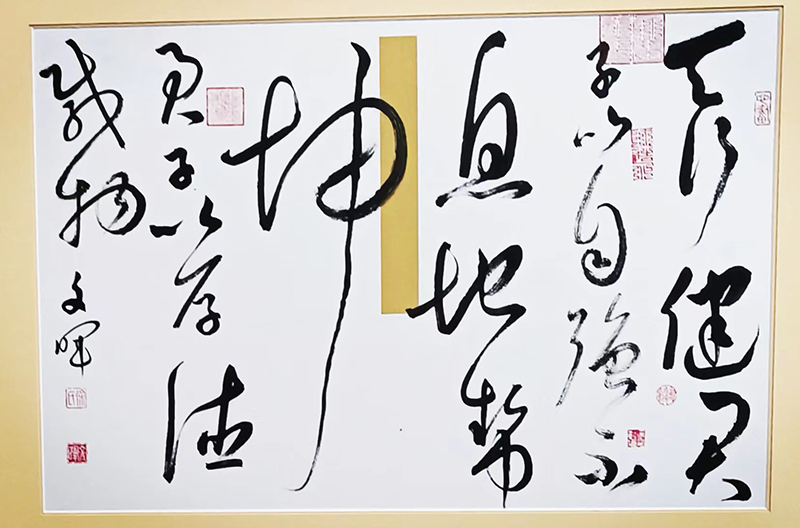 天行健君
子以自强不
息地势
坤
君子以厚德
载物 文晖